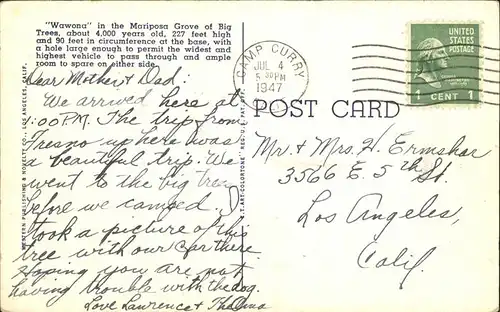 "Wawona" in the Mariposa Grove of Big
Trees, about 4,000 years old, 227 feet high
and 90 feet in circumference at the base, with
a hole large enough to permit the widest and
highest vehicle to pass through and ample
room to spare on either side.
Dear Mother & Dad:
We arrived here at
1:00 P.M. The trip from
Fresno up here was
a beautiful trip. We
went to the big trees
before we camped. I
took a picture of this
tree with our car there.
Hoping you are not
having trouble with the dog.
Love Lawrence & Thelma
WESTERN PUBLISHING & NOVELTY CO., LOS ANGELES, CALIF.
C.T. ART-COLORTONE REG. U.S. PAT. OFF.
CAMP CURRY
JUL 4
5 30 PM
1947
UNITED
STATES
POSTAGE
1 CENT 1
POST CARD
Mr. & Mrs. H. Ermshar
3566 E. 5th St.
Los Angeles,
Calif.